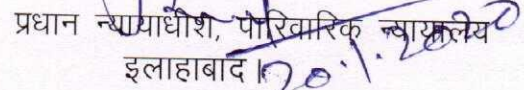 प्रधान न्यायाधीश, पारिवारिक न्यायालय
इलाहाबाद।